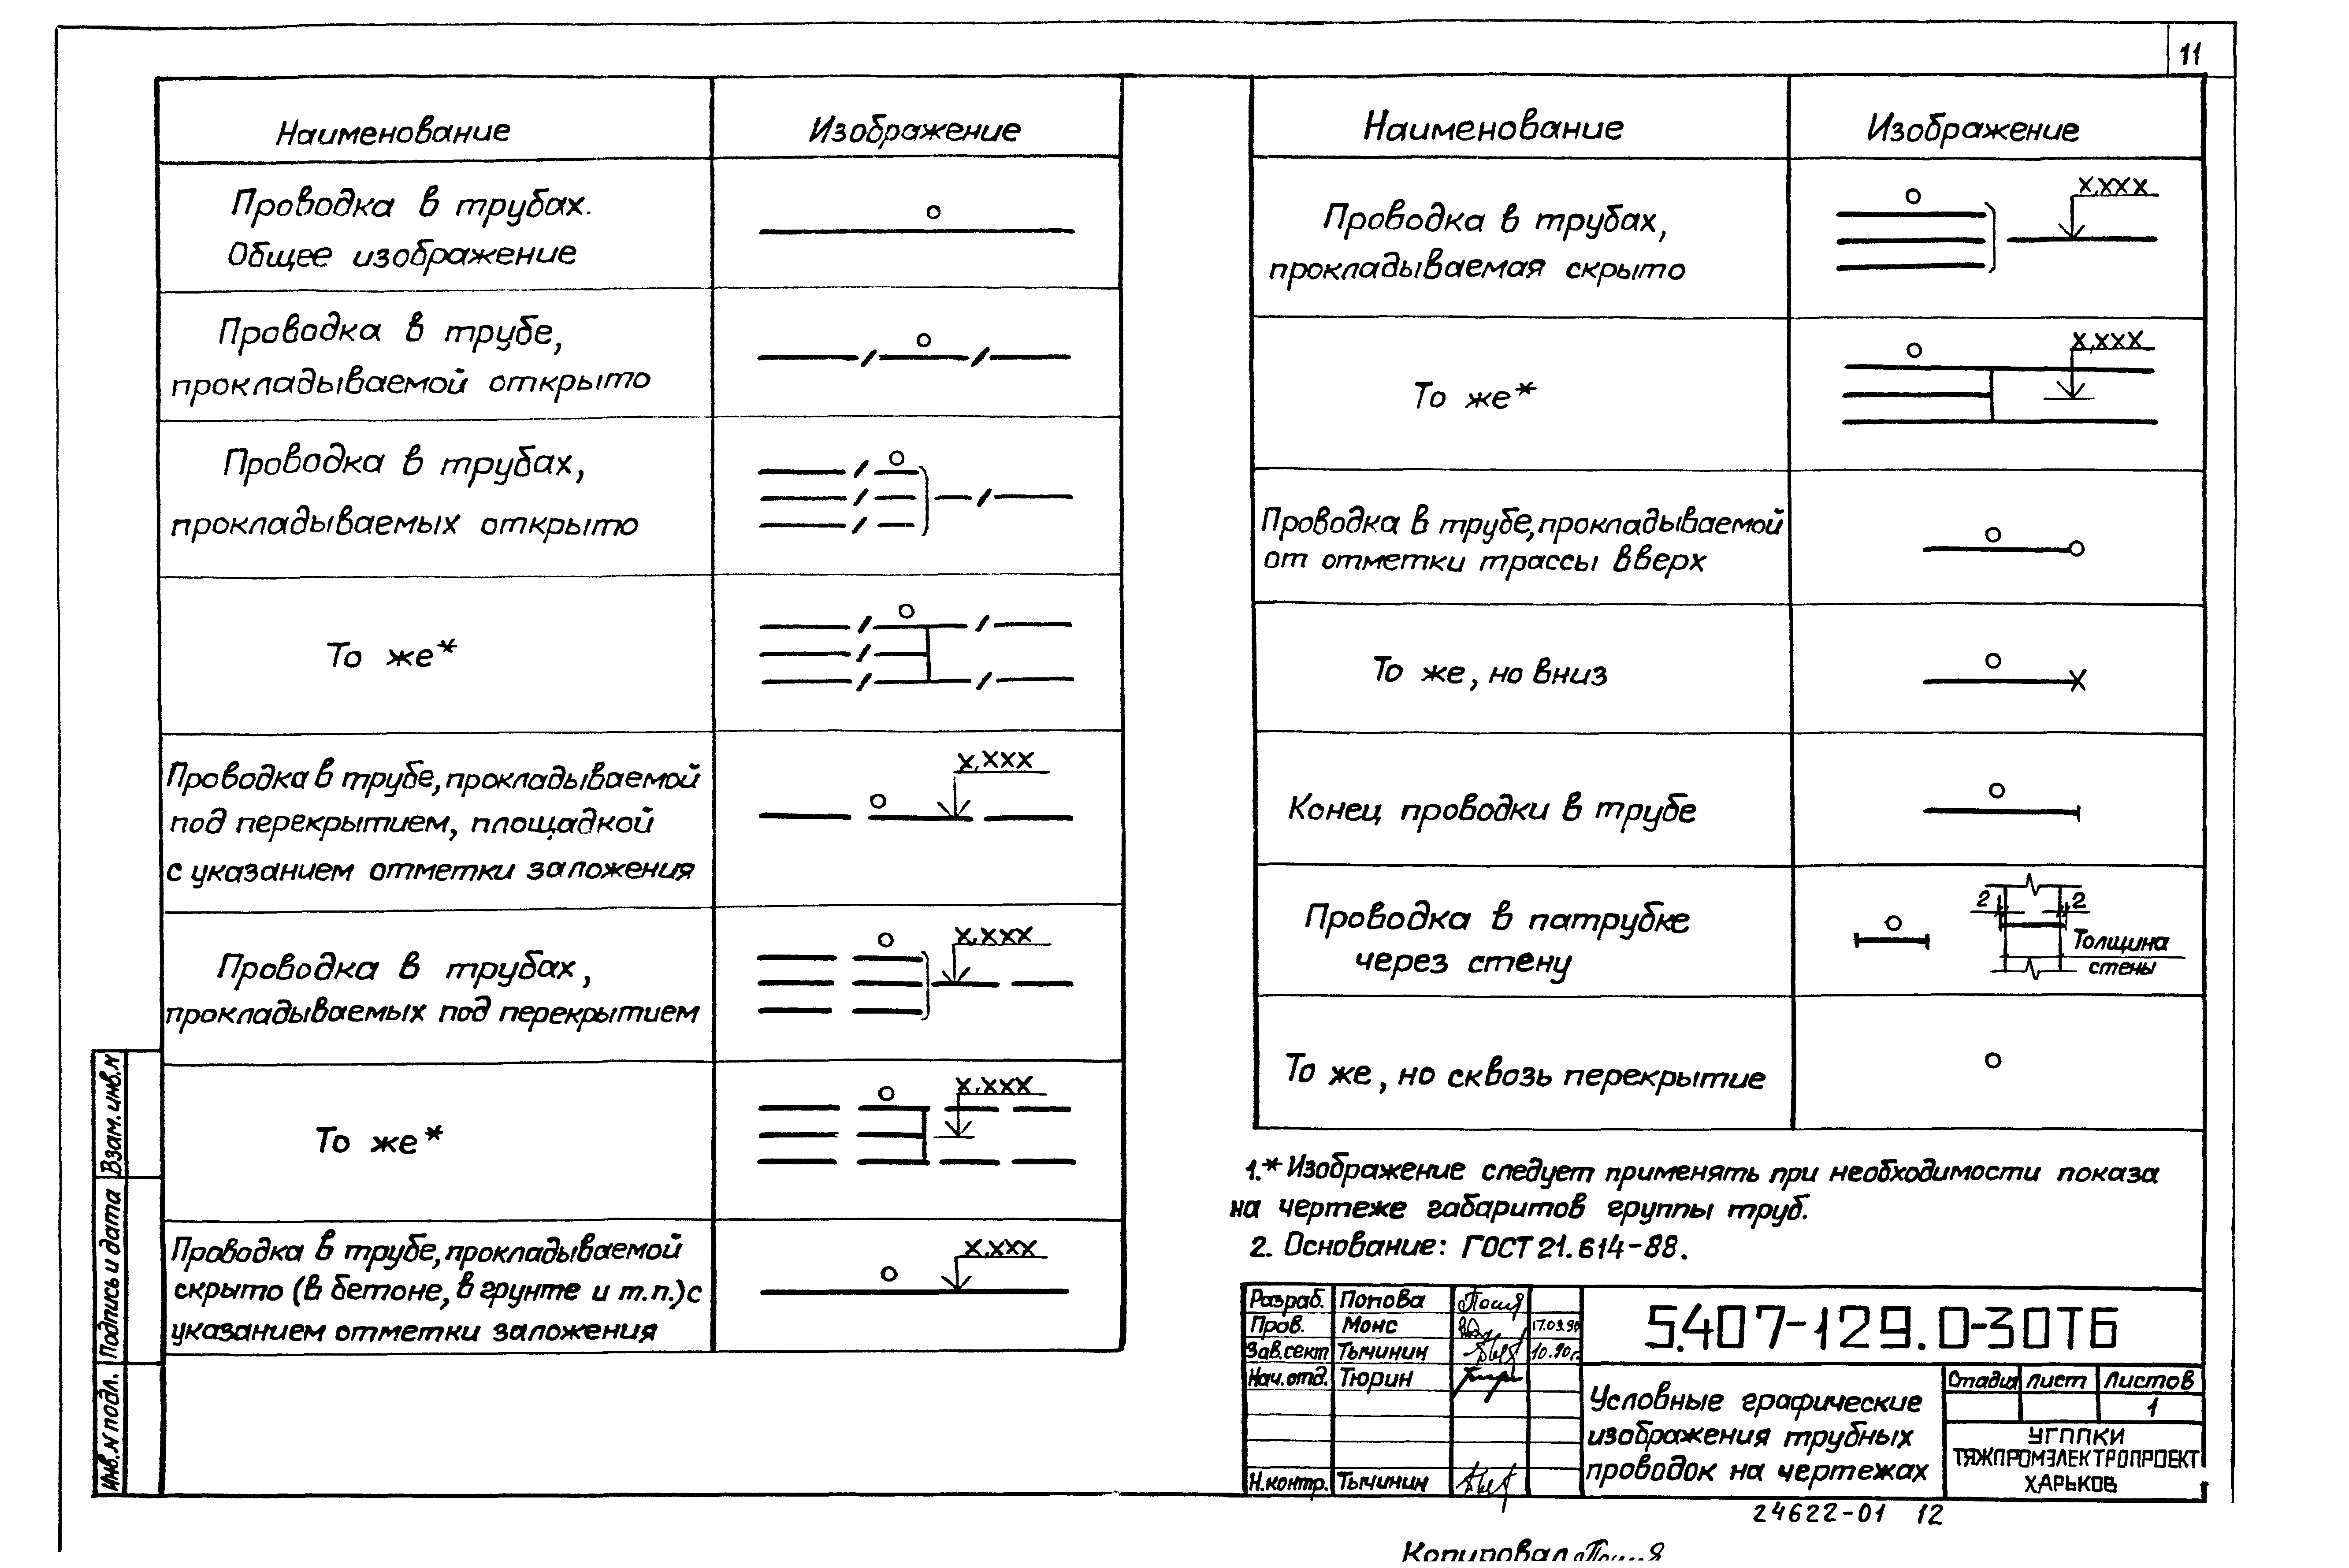 11
Наименование
Изображение
Проводка в трубах.
Общее изображение
Проводка в трубе,
прокладываемой открыто
Проводка в трубах,
прокладываемых открыто
То же*
Проводка в трубе, прокладываемой
под перекрытием, площадкой
с указанием отметки заложения
х,ххх
Проводка в трубах,
прокладываемых под перекрытием
х,ххх
То же*
х,ххх
Проводка в трубе, прокладываемой
скрыто (в бетоне, в грунте и т.п.) с
указанием отметки заложения
х,ххх
Наименование
Изображение
Проводка в трубах,
прокладываемая скрыто
х,ххх
То же*
х,ххх
Проводка в трубе, прокладываемой
от отметки трассы вверх
То же, но вниз
Конец проводки в трубе
Проводка в патрубке
через стену
2
2
Толщина
стены
То же, но сквозь перекрытие
1.* Изображение следует применять при необходимости показа
на чертеже габаритов группы труб.
2. Основание: ГОСТ 21.614-88.
Разраб. Попова
Пров. Монс 17.09.90
Зав.сект Тычинин 10.90г.
Нач.отд. Тюрин
Н.контр. Тычинин
5.407-129.0-30ТБ
Условные графические
изображения трубных
проводок на чертежах
Стадия Лист Листов
1
УГППКИ
ТЯЖПРОМЭЛЕКТРОПРОЕКТ
ХАРЬКОВ
24622-01 12
Копировал
Взам. инв. N
Подпись и дата
Инв. N подл.